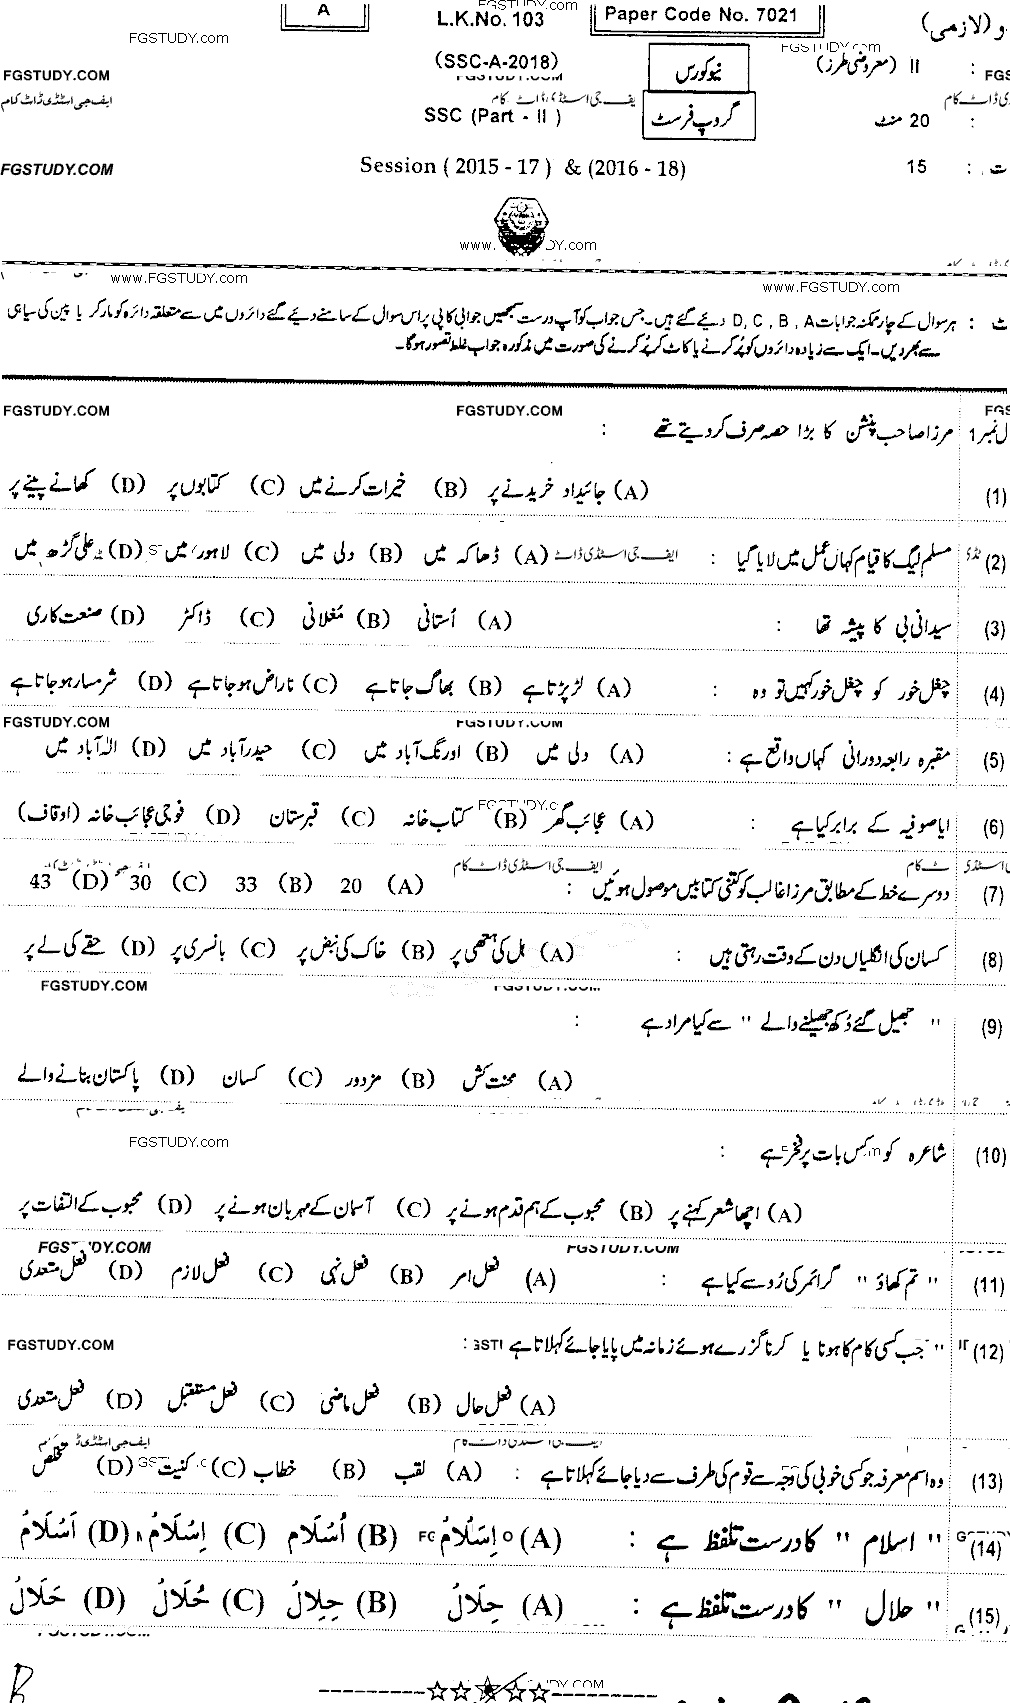 FGSTUDY.com
A L.K.No. 103 Paper Code No. 7021 و (لازمی)
FGSTUDY.com FGSTUDY.com
FGSTUDY.COM (SSC-A-2018) نیو کورس II (معروضی طرز) :
ایف جی اسٹڈی ڈاٹ کام
SSC (Part - II) گروپ فرسٹ 20 منٹ :
FGSTUDY.COM Session (2015 - 17) & (2016 - 18) 15 :
www. DY.com
www.FGSTUDY.com www.FGSTUDY.com
ٹ : ہر سوال کے چار ممکنہ جوابات D, C, B, A دیئے گئے ہیں۔ جس جواب کو آپ درست سمجھیں جوابی کاپی پر اس سوال کے سامنے دیئے گئے دائروں میں سے متعلقہ دائرہ کو مارکر یا پین کی سیاہی
سے بھر دیں۔ ایک سے زیادہ دائروں کو پُر کرنے یا کاٹ کر پُر کرنے کی صورت میں مذکورہ جواب غلط تصور ہوگا۔
FGSTUDY.COM FGSTUDY.COM
ل نمبر 1 مرزا صاحب پنشن کا بڑا حصہ صرف کر دیتے تھے :
(1) (A) جائیداد خریدنے پر (B) خیرات کرنے میں (C) کتابوں پر (D) کھانے پینے پر
(2) مسلم لیگ کا قیام کہاں عمل میں لایا گیا : ایف جی اسٹڈی ڈاٹ (A) ڈھاکہ میں (B) دلی میں (C) لاہور میں (D) علی گڑھ میں
(3) سیدانی بی کا پیشہ تھا : (A) اُستانی (B) مُغلانی (C) ڈاکٹر (D) صنعت کاری
(4) چغل خور کو چغل خور کہیں تو وہ : (A) لڑ پڑتا ہے (B) بھاگ جاتا ہے (C) ناراض ہو جاتا ہے (D) شرمسار ہو جاتا ہے
FGSTUDY.COM FGSTUDY.COM
(5) مقبرہ رابعہ دورانی کہاں واقع ہے : (A) دلی میں (B) اورنگ آباد میں (C) حیدر آباد میں (D) الہٰ آباد میں
(6) ایا صوفیہ کے برابر کیا ہے : (A) عجائب گھر (B) کتاب خانہ (C) قبرستان (D) فوجی عجائب خانہ (اوقاف)
ایف جی اسٹڈی ڈاٹ کام
(7) دوسرے خط کے مطابق مرزا غالب کو کتنی کتابیں موصول ہوئیں : (A) 20 (B) 33 (C) 30 (D) 43
(8) کسان کی انگلیاں دن کے وقت رہتی ہیں : (A) ہل کی ہتھی پر (B) خاک کی نبض پر (C) بانسری پر (D) حقے کی لے پر
FGSTUDY.COM FGSTUDY.COM
(9) " جھیل گئے دُکھ جھیلنے والے " سے کیا مراد ہے :
(A) محنت کش (B) مزدور (C) کسان (D) پاکستان بنانے والے
FGSTUDY.com
(10) شاعرہ کو کس بات پر فخر ہے :
(A) اچھا شعر کہنے پر (B) محبوب کے ہم قدم ہونے پر (C) آسمان کے مہربان ہونے پر (D) محبوب کے التفات پر
FGSTUDY.COM FGSTUDY.COM
(11) " تم کھاؤ " گرائمر کی رُو سے کیا ہے : (A) فعل امر (B) فعل نہی (C) فعل لازم (D) فعل متعدی
FGSTUDY.COM
(12) " جب کسی کام کا ہونا یا کرنا گزرے ہوئے زمانہ میں پایا جائے کہلاتا ہے :
(A) فعل حال (B) فعل ماضی (C) فعل مستقبل (D) فعل متعدی
ایف جی اسٹڈی ڈاٹ کام
(13) وہ اسم معرفہ جو کسی خوبی کی وجہ سے قوم کی طرف سے دیا جائے کہلاتا ہے : (A) لقب (B) خطاب (C) کنیت (D) تخلص
(14) " اسلام " کا درست تلفظ ہے : (A) اِسَلَامُ (B) اُسْلَام (C) اِسْلَامُ (D) اَسْلَامُ
(15) " حلال " کا درست تلفظ ہے : (A) حِلَالُ (B) حِلِالُ (C) حُلَالُ (D) حَلَالُ
B